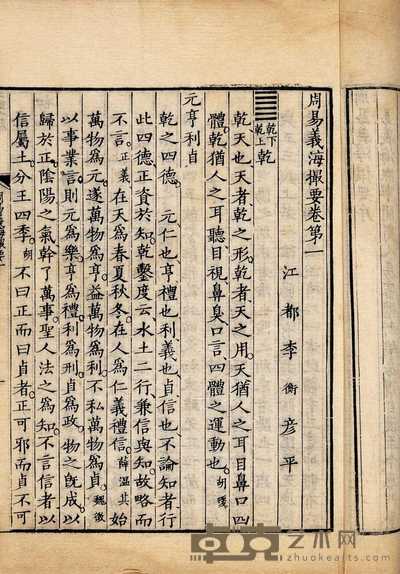 周易義海撮要卷第一
江都李衡彥平
乾下乾上乾
乾天也天者乾之形乾者天之用天猶人之耳目鼻口四
體乾猶人之耳聽目視鼻臭口言四體之運動也胡瑗
元亨利貞
乾之四德 元仁也亨禮也利義也貞信也不論知者行
此四德正資於知乾鑿度云水土二行兼信與知故略而
不言正義在天爲春夏秋冬在人爲仁義禮信薛溫其始
萬物爲元遂萬物爲亨益萬物爲利不私萬物爲貞魏徵
以事業言則元爲樂亨爲禮利爲刑貞爲政物之旣成以
歸於正陰陽之氣幹了萬事聖人法之爲知不言信者以
信屬土分王四季胡不曰正而曰貞者正可邪而貞不可
艺术网
zhuokearts.com